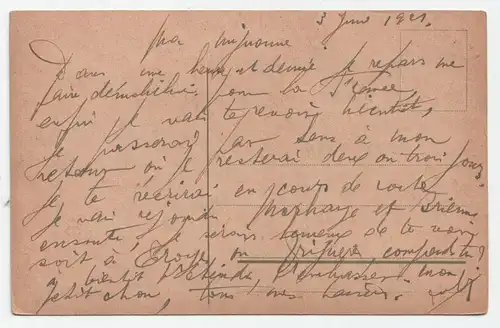 3 Juin 1921.
Ma mignonne
Dans une heure et demie je repars me
faire démobiliser pour la France,
enfin je vais te revoir bientôt,
je passerai par Sens à mon
retour où je resterai deux ou trois jours.
Je te récrirai en cours de route
Je vais rejoindre et Brienne
ensuite, je serais heureux de te voir
soit à Troyes ou comprends tu?
à bientôt j'embrasse mon
petit chou, tous mes baisers.